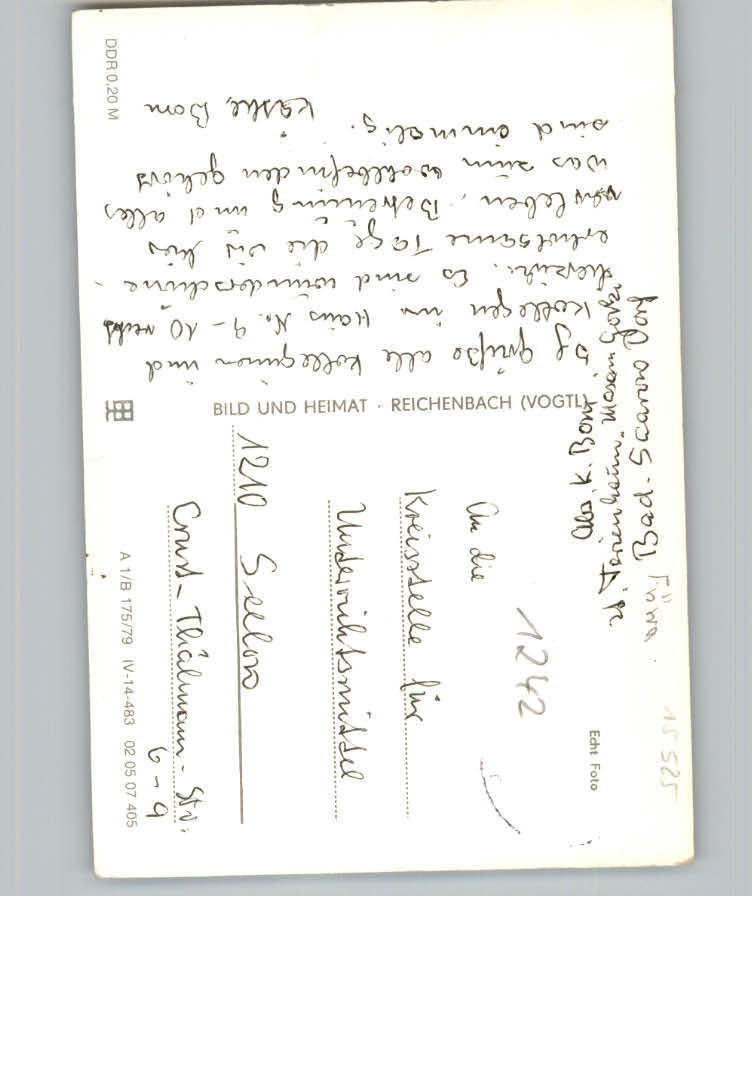 Abs. K. Born
"Ferienheim" Maxim Gorki
Bad-Saarow
grüße alle Kolleginnen und
Kollegen im Haus No. 9-10 recht
herzlich. Es sind wunderschöne
erholsame Tage die wir hier
verleben, Betreuung und alles
was zum Wohlbefinden gehört
sind einmalig. Käthe Born
BILD UND HEIMAT · REICHENBACH (VOGTL)
Echt Foto
1242
15 525
An die
Kreisstelle für
Unterrichtsmittel
1210 Seelow
Ernst-Thälmann-Str.
6-9
DDR 0,20 M
A 1/B 175/79 IV-14-483 02 05 07 405